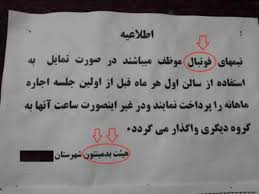 اطلاعیه
تیمهای فوتبال موظف میباشند در صورت تمایل به
استفاده از سالن اول هر ماه قبل از اولین جلسه اجاره
ماهانه را پرداخت نمایند ودر غیر اینصورت ساعت آنها به
گروه دیگری واگذار می گردد.
هیئت بدمینتون شهرستان